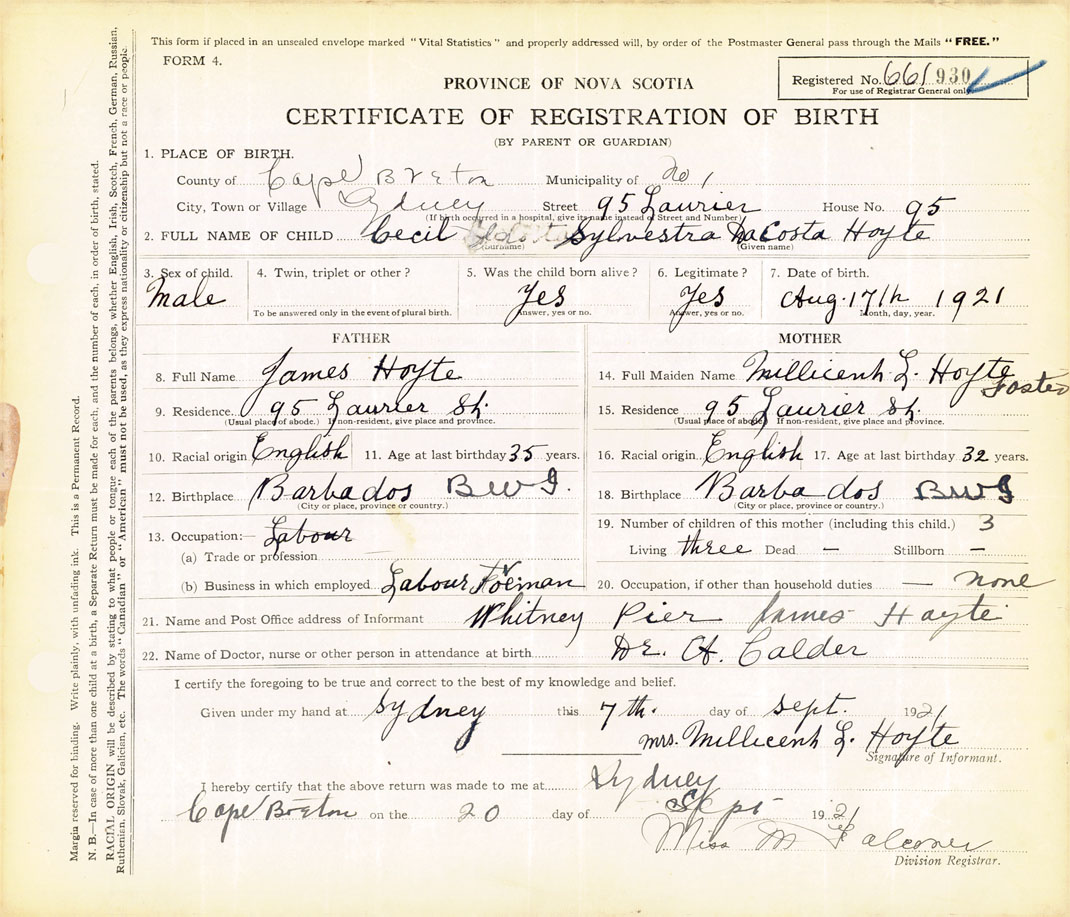 This form if placed in an unsealed envelope marked "Vital Statistics" and properly addressed will, by order of the Postmaster General pass through the Mails "FREE."
FORM 4.
Registered No. 661930
For use of Registrar General only.
PROVINCE OF NOVA SCOTIA
CERTIFICATE OF REGISTRATION OF BIRTH
(BY PARENT OR GUARDIAN)
1. PLACE OF BIRTH.
County of Cape Breton Municipality of No 1
City, Town or Village Sydney Street 95 Laurier House No. 95
(If birth occurred in a hospital, give its name instead of Street and Number)
2. FULL NAME OF CHILD Cecil Sylvestra DaCosta Hoyte
(Surname) (Given name)
3. Sex of child. 4. Twin, triplet or other? 5. Was the child born alive? 6. Legitimate? 7. Date of birth.
Male Yes Yes Aug. 17th 1921
To be answered only in the event of plural birth. Answer, yes or no. Answer, yes or no. Month, day, year.
FATHER
8. Full Name James Hoyte
9. Residence 95 Laurier St.
(Usual place of abode.) If non-resident, give place and province.
10. Racial origin English 11. Age at last birthday 35 years.
12. Birthplace Barbados BWI.
(City or place, province or country.)
13. Occupation:— Labour
(a) Trade or profession
(b) Business in which employed Labour Foreman
MOTHER
14. Full Maiden Name Millicent L. Hoyte Foster
15. Residence 95 Laurier St.
(Usual place of abode) If non-resident, give place and province.
16. Racial origin English 17. Age at last birthday 32 years.
18. Birthplace Barbados BWI
(City or place, province or country.)
19. Number of children of this mother (including this child.) 3
Living three Dead — Stillborn —
20. Occupation, if other than household duties — none
21. Name and Post Office address of Informant Whitney Pier James Hoyte
22. Name of Doctor, nurse or other person in attendance at birth Dr. A. Calder
I certify the foregoing to be true and correct to the best of my knowledge and belief.
Given under my hand at Sydney this 7th. day of Sept. 1921
Mrs. Millicent L. Hoyte
Signature of Informant.
I hereby certify that the above return was made to me at Sydney
Cape Breton on the 20 day of Sept 1921
Miss M Falconer
Division Registrar.
Margin reserved for binding. Write plainly, with unfading ink. This is a Permanent Record.
N. B.—In case of more than one child at a birth, a Separate Return must be made for each, and the number of each, in order of birth, stated.
RACIAL ORIGIN will be described by stating to what people or tongue each of the parents belongs, whether English, Irish, Scotch, French, German, Russian,
Ruthenian, Slovak, Galician, etc. The words "Canadian" or "American" must not be used, as they express nationality or citizenship but not a race or people.